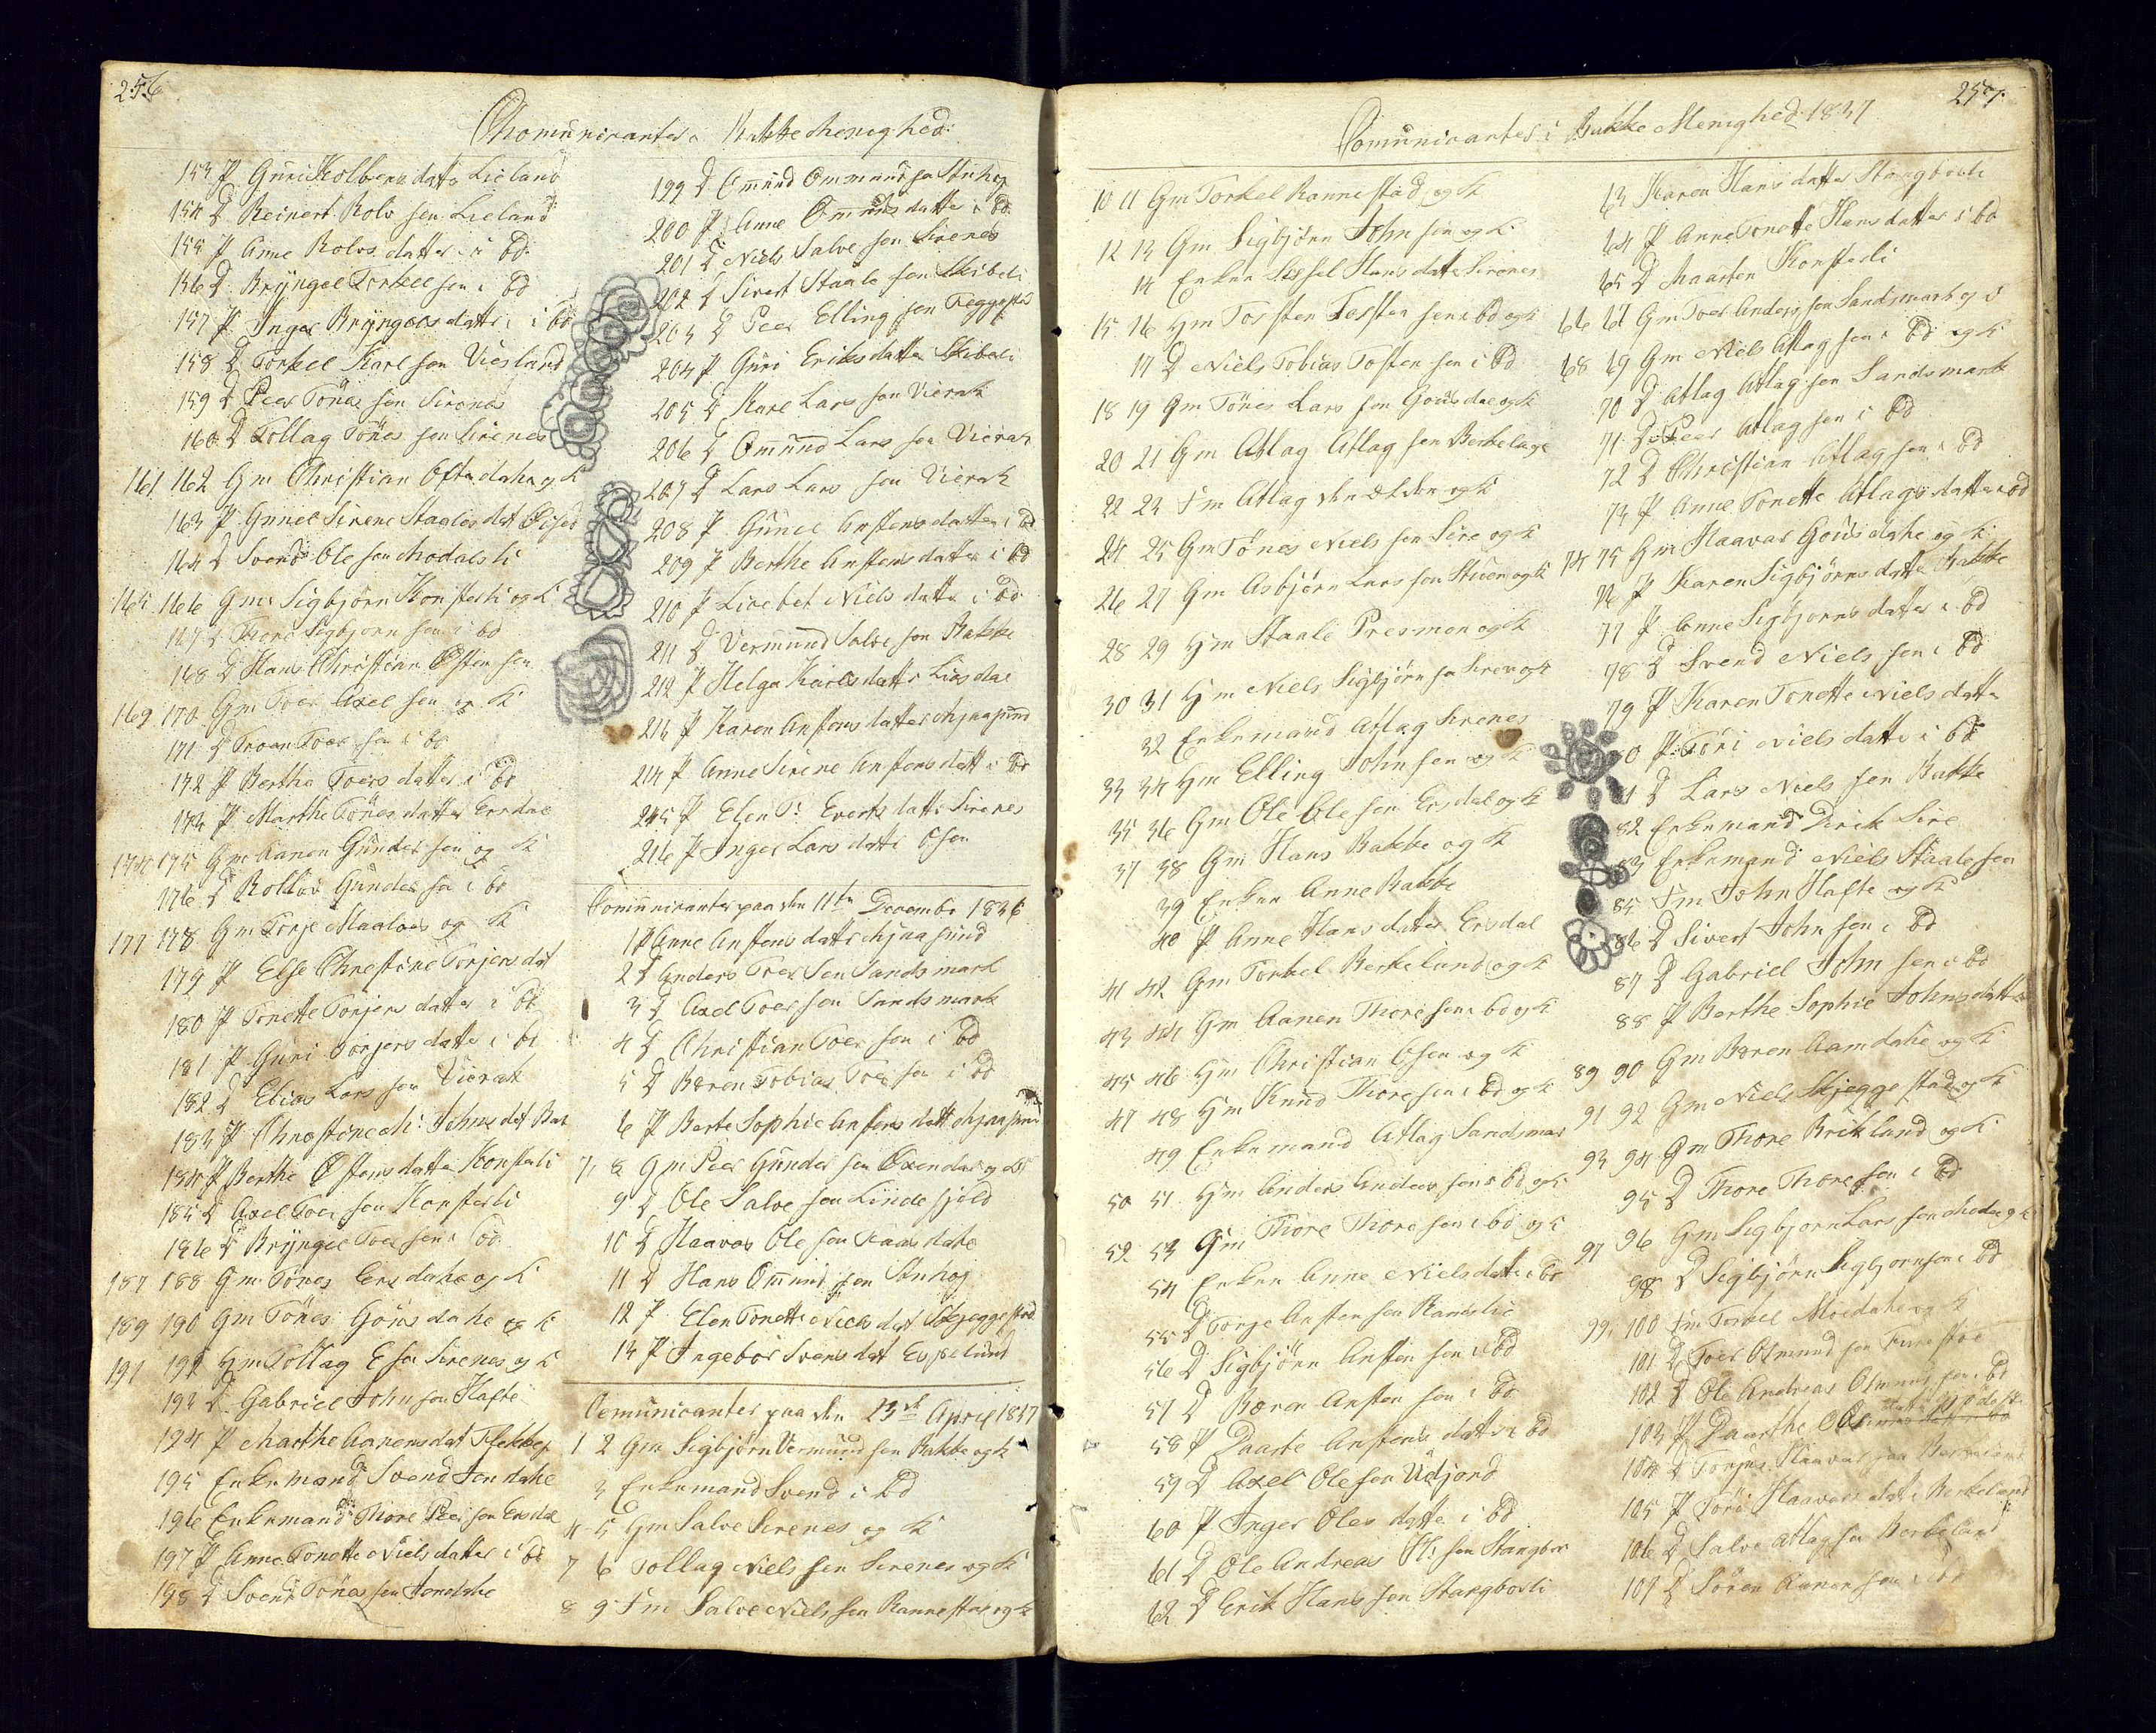 256
Chomunicanter i Bakke Menighed:
153 P Guri Kolbens datter Lieland
154 D Reinert Rolv sen Lieland
155 P Anne Rolvs datter i bd
156 D Bryngel Torkel sen i bd
157 P Inger Bryngels datter i bd
158 D Torkel Karl sen Viesland
159 D Peer Tönes sen Sirenes
160 D Tollag Tönes sen Sirenes
161 162 Gm Christian Oftedahe og K
163 P Gunel Sirene Staales dat
164 D Svend Ole sen Modalsli
165 166 Gm Sigbjörn Konsterli og K
167 D Thore Sigbjorn sen i bd
168 D Hans Christian Østen sen
169 170 Gm Toer Axel sen og K
171 D Troen Toer sen i bd
172 P Bertha Toers datter i bd
173 P Marthe Tönes datter Ersdal
174 175 Gm Aanen Gunder sen og K
176 D Rollov Gunder sen i bd
177 178 Gm Torje og K
179 P Else Chrestine Torjers dat
180 P Tonette Torjers datter i bd
181 P Guri Torjers datter i bd
182 D Elias Lars sen Vierak
183 P Johns dat
184 P Berthe Østens datter Konsterli
185 D Axel Toer sen Konsterli
186 D Bryngel Toer sen i bd
187 188 Gm Tönes Ersdahe og K
189 190 Gm Tönes Gousdahe og K
191 192 Hm Tollag E sen Sirenes og K
193 D Gabriel John sen Hafte
194 P Marthe Aanens dat
195 Enkemand Svend
196 Enkemand Thore Peer sen Ersdal
197 P Anne Tonette Niels datter i bd
198 D Svend Tönes sen
199 D Omund Ommund sen Stuhoj
200 P Anne Omunds datter i bd
201 D Niels Salve sen Sirenes
202 D Sivert Staale sen Skibeli
203 D Peer Elling sen
204 P Guri Eriks datter Skibeli
205 D Karl Lars sen Vierak
206 D Omund Lars sen Vierak
207 D Lars Lars sen Vierak
208 P Gunel Anstens datter i bd
209 P Berthe Anstens datter i bd
210 P Lisebet Niels datter i bd
211 D Vermund Salve sen Bakke
212 P Helga Karls datter Liesdal
213 P Karen Anstens datter
214 P Anne Sirene Anstens datt i bd
215 P Elen T: Everts datter Sirenes
216 P Inger Lars datter Osen
Comunicanter paa den 11te December 1836
1 P Anne Anstens datter
2 D Anders Toer Sen Sandsmark
3 D Axel Toer sen Sandsmark
4 D Christian Toer sen i bd
5 D Bæren Tobias Toer sen i bd
6 P Berte Sophie Anstens datt
7, 8 Gm Peer Gunder sen og K
9 D Ole Salve sen Lindefjeld
10 D Haavor Ole sen
11 D Hans Omund sen Stuhoj
12 P Elen Tonette Niels dat Skjeggestad
13 P Ingebor Svens dat Espelund
Comunicanter paa den 23de April 1837
1 2 Gm Sigbjörn Vermund sen Bakke og K
3 Enkemand Svend i bd
4 5 Gm Salve Sirenes og K
7 6 Tollag Niels sen Sirenes og K
8 9 Fm Salve Niels sen Rannestad og K
257
Comunicanter i Bakke Menighed 1837
10 11 Gm Torkel Rannestad og K
12 13 Gm Sigbjörn John sen og K
14 Enken Sissel Hans datter Sirenes
15 16 Hm Torsten Torsten sen i bd og K
17 D Niels Tobias Tosten sen i bd
18 19 Gm Tönes Lars sen Gousdal og K
20 21 Gm Atlag Atlag sen
22 23 Fm Atlag den ælden og K
24 25 Gm Tönes Niels sen Sire og K
26 27 Gm Asbjörn Lars sen Stuen og K
28 29 Hm Staale Presmon og K
30 31 Hm Niels Sigbjörn sen og K
32 Enkemand Atlag Sirenes
33 34 Hm Elling John sen og K
35 36 Gm Ole Ole sen Ersdal og K
37 38 Gm Hans Bakke og K
39 Enken Anne Bakke
40 P Anne Hans datter Ersdal
41 42 Gm Torkel Berkeland og K
43 44 Gm Aanen Thore sen i bd og K
45 46 Hm Christian Osen og K
47 48 Hm Knud Thore sen i bd og K
49 Enkemand Atlag Sandsmar
50 51 Hm Anders Anders sen i bd og K
52 53 Gm Thore Thore sen i bd og K
54 Enken Anne Niels datter i bd
55 D Torje Ansten sen
56 D Sigbjörn Ansten sen i bd
57 D Bæren Ansten sen i bd
58 P Daarte Anstens datter i bd
59 D Axel Ole sen Udjord
60 P Inger Oles datte i bd
61 D Ole Andreas H: sen Stangbor
62 D Erik Hans sen Stangborli
63 Karen Hans datter Stangborli
64 P Anne Tonette Hans datter i bd
65 D Maarten Konsterli
66 67 Gm Toer Anders sen Sandsmark og K
68 69 Gm Niels Atlag sen i bd og K
70 D Atlag Atlag sen Sandsmark
71 D Peer Atlag sen i bd
72 D Christian Atlag sen i bd
73 P Anne Tonette Atlags datter i bd
74 75 Gm Haavar Gousdahe og K
76 P Karen Sigbjörns datte Bakke
77 P Anne Sigbjorns datter i bd
78 D Svend Niels sen i bd
79 P Karen Tonette Niels datter
80 P Töri Niels datte i bd
81 D Lars Niels sen Bakke
82 Enkemand Dirik Sire
83 Enkemand Niels Staale sen
85 Fm John Hafte og K
86 D Sivert John sen i bd
87 D Gabriel John sen i bd
88 P Berthe Sophie Johns datter
89 90 Gm Bæren Aamdahe og K
91 92 Gm Niels Skjeggestad og K
93 94 Gm Thore Brikland og K
95 D Thore Thore sen i bd
97 96 Gm Sigbjorn Lars sen og K
98 D Sigbjörn Sigbjorn sen i bd
99 100 Fm Torkel Moedahe og K
101 D Toer Osmund sen
102 D Ole Andreas Osmund sen i bd
103 P Daarthe
104 D Torjus Haavar sen
105 P Töri Haavars datte Berkeland
106 D Salve Atlag sen Berkeland
107 D Sören Aanen sen i bd